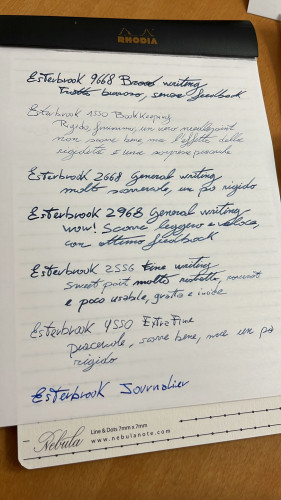 RHODIA
Esterbrook 9668 Broad writing
Tratto buono, senza feedback
Esterbrook 1550 Bookkeeping
Rigido, finissimo, un vero needlepoint
non scorre bene ma l'effetto della
rigidità è una sorpresa piacevole
Esterbrook 2668 General writing
molto scorrevole, un po rigido
Esterbrook 2968 General writing
wow! Scorre leggero e veloce,
con ottimo feedback
Esterbrook 2556 Fine writing
Sweet spot molto ristretto,
e poco usabile, gratta e incide
Esterbrook 4550 Extra Fine
piacevole, scorre bene, ma un po
rigido
Esterbrook Journalier
Nebula
Line & Dots 7mm x 7mm
www.nebulanote.com